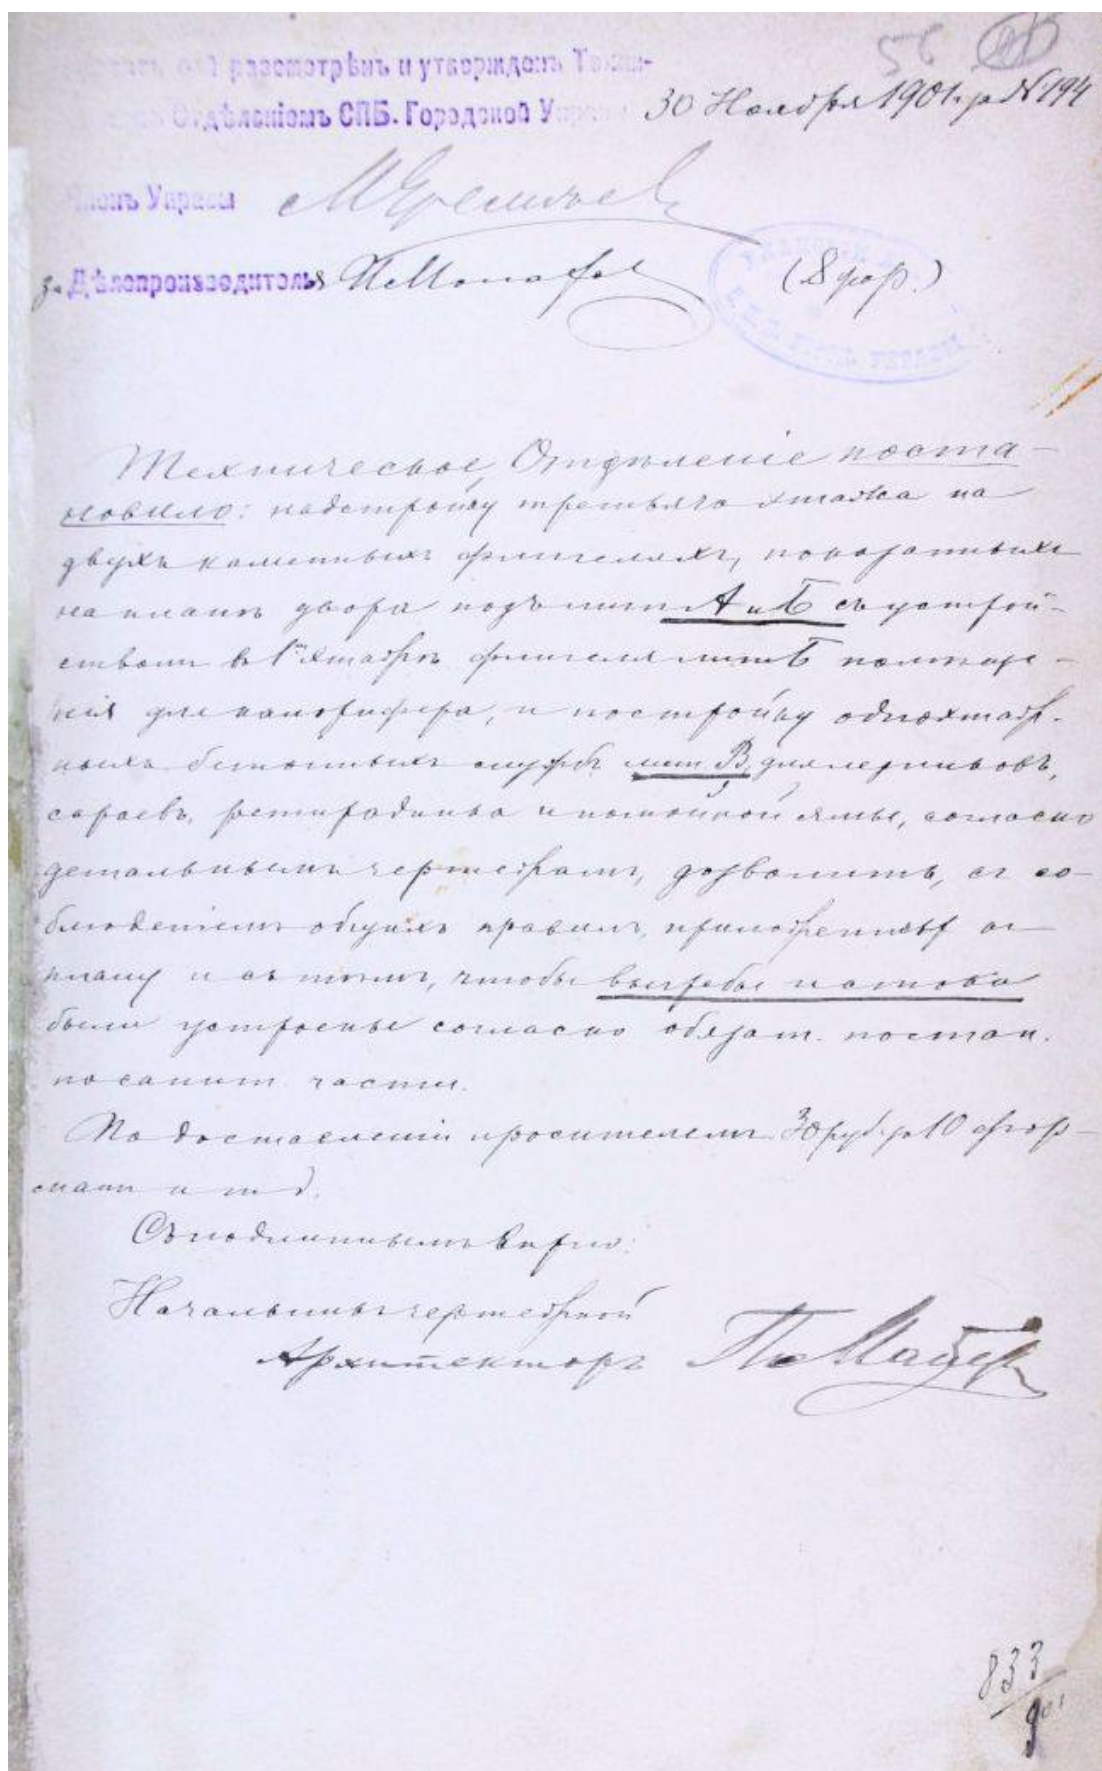 56
разсмотрѣнъ и утвержденъ Техни-
Отдѣленіемъ СПБ. Городской Управы 30 Ноября 1901 г. за № 194
Членъ Управы
за Дѣлопроизводителя
(8 фор.)
Техническое Отдѣленіе поста-
новило: надстройку третьяго этажа на
двухъ каменныхъ флигеляхъ, показанныхъ
на планѣ двора подъ лит А и Б съ устрой-
ствомъ въ 1мъ этажѣ флигеля лит Б помѣще-
нія для калорифера, и постройку одноэтаж-
ныхъ бетонныхъ службъ лит В, для ледниковъ,
сараевъ, ретирадника и помойной ямы, согласно
детальнымъ чертежамъ, дозволить, съ со-
блюденіемъ общихъ правилъ, приложенныхъ къ
плану и съ тѣмъ, чтобы выгребы и стоки
были устроены согласно обязат. постан.
по санит части.
По доставленіи просителемъ 30 руб. за 10 фор-
мати и т д.
Съ подлиннымъ вѣрно:
Начальникъ чертежной
Архитекторъ
833
901